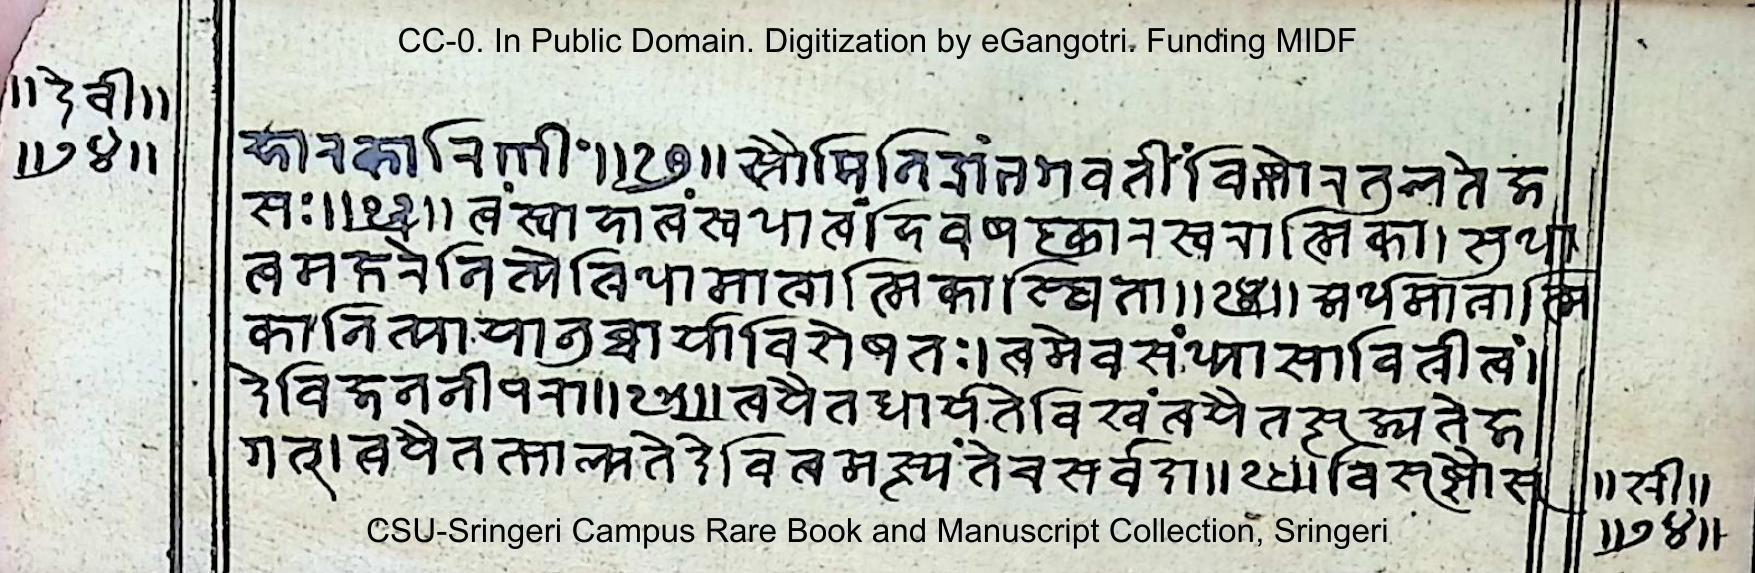 CC-0. In Public Domain. Digitization by eGangotri. Funding MIDF
॥देवी॥
॥७४॥
कारकारिणीं॥ ॥स्तौमिनिद्रांभगवतींविष्णोरतुलतेज
सः॥ ॥त्वंस्वाहात्वंस्वधात्वंहिवषट्कारस्वरात्मिका।सुधा
त्वमक्षरेनित्येत्रिधामात्रात्मिकास्थिता॥ ॥अर्धमात्रात्मि
कानित्यायानुच्चार्याविशेषतः।त्वमेवसंध्यासावित्रीत्वं
देविजननीपरा॥२५॥त्वयैतधार्यतेविश्वंत्वयैतत्सृज्यतेज
गत्।त्वयैतत्पाल्यतेदेवित्वमत्स्यंतेचसर्वदा॥२६॥विसृष्टौसृ
॥स्री॥
॥७४॥
CSU-Sringeri Campus Rare Book and Manuscript Collection, Sringeri